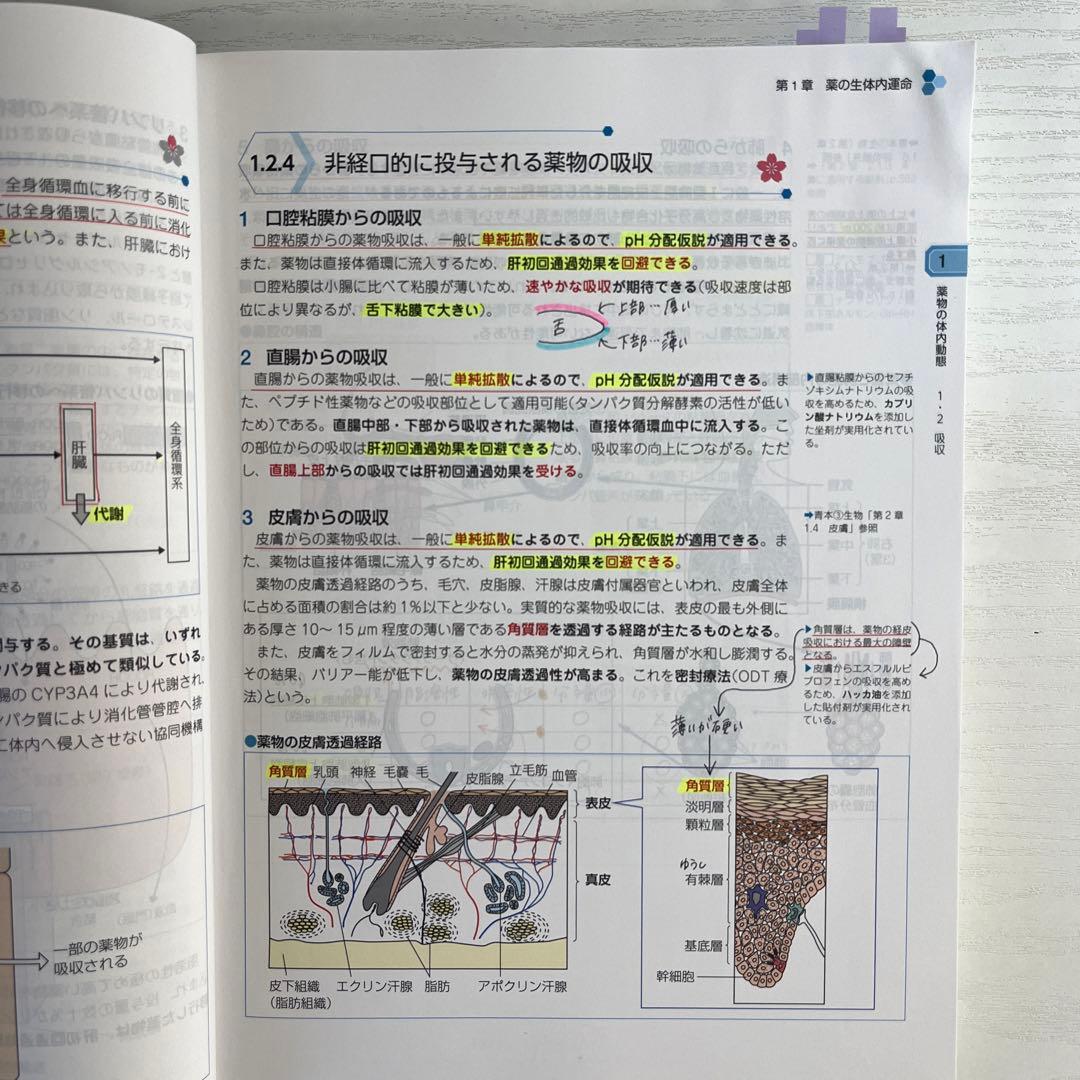 全身循環血に移行する前に
ては全身循環に入る前に消化
果という。また、肝臓におけ
肝臓
全身循環系
代謝
きる
与する。その基質は、いずれ
パク質と極めて類似している。
腸の CYP3A4 により代謝され、
パク質により消化管管腔へ排
に体内へ侵入させない協同機構
一部の薬物が
吸収される
第1章 薬の生体内運命
1.2.4 非経口的に投与される薬物の吸収
1 口腔粘膜からの吸収
口腔粘膜からの薬物吸収は、一般に単純拡散によるので、pH 分配仮説が適用できる。
また、薬物は直接体循環に流入するため、肝初回通過効果を回避できる。
口腔粘膜は小腸に比べて粘膜が薄いため、速やかな吸収が期待できる(吸収速度は部
位により異なるが、舌下粘膜で大きい)。
舌
上部…厚い
下部…薄い
2 直腸からの吸収
直腸からの薬物吸収は、一般に単純拡散によるので、pH 分配仮説が適用できる。ま
た、ペプチド性薬物などの吸収部位として適用可能(タンパク質分解酵素の活性が低い
ため)である。直腸中部・下部から吸収された薬物は、直接体循環血中に流入する。こ
の部位からの吸収は肝初回通過効果を回避できるため、吸収率の向上につながる。ただ
し、直腸上部からの吸収では肝初回通過効果を受ける。
▶直腸粘膜からのセフチ
ゾキシムナトリウムの吸
収を高めるため、カプリ
ン酸ナトリウムを添加し
た坐剤が実用化されてい
る。
3 皮膚からの吸収
皮膚からの薬物吸収は、一般に単純拡散によるので、pH 分配仮説が適用できる。ま
た、薬物は直接体循環に流入するため、肝初回通過効果を回避できる。
薬物の皮膚透過経路のうち、毛穴、皮脂腺、汗腺は皮膚付属器官といわれ、皮膚全体
に占める面積の割合は約1%以下と少ない。実質的な薬物吸収には、表皮の最も外側に
ある厚さ 10〜15 μm 程度の薄い層である角質層を透過する経路が主たるものとなる。
また、皮膚をフィルムで密封すると水分の蒸発が抑えられ、角質層が水和し膨潤する。
その結果、バリアー能が低下し、薬物の皮膚透過性が高まる。これを密封療法(ODT 療
法)という。
➡青本③生物「第2章
1.4 皮膚」参照
▶角質層は、薬物の経皮
吸収における最大の障壁
となる。
▶皮膚からエスフルルビ
プロフェンの吸収を高め
るため、ハッカ油を添加
した貼付剤が実用化され
ている。
薄いが硬い
●薬物の皮膚透過経路
角質層 乳頭 神経 毛嚢 毛 皮脂腺 立毛筋 血管
表皮
真皮
皮下組織
(脂肪組織)
エクリン汗腺 脂肪 アポクリン汗腺
角質層
淡明層
顆粒層
ゆうし
有棘層
基底層
幹細胞
1
薬物の体内動態
1・2 吸収